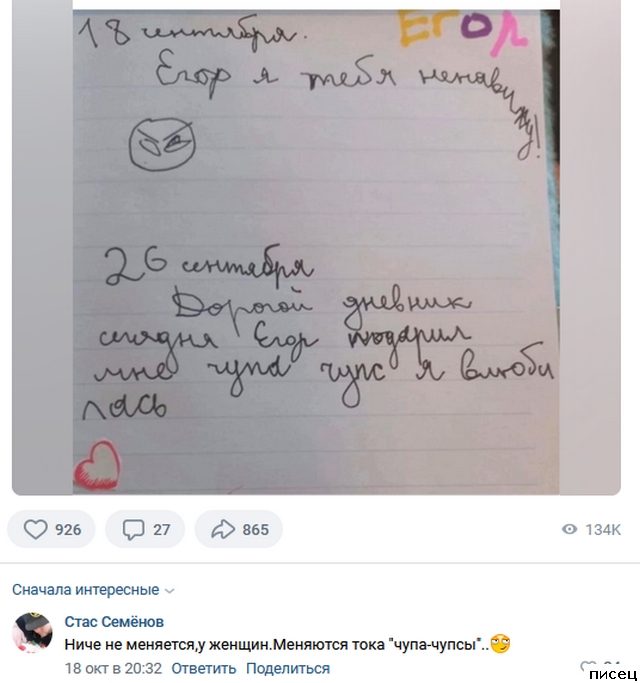 18 сентября.
ЕГОР
Егор я тебя ненавижу!
26 сентября
Дорогой дневник
сегодня Егор подарил
мне чупа чупс я влюби
лась
926 27 865 134K
Сначала интересные
Стас Семёнов
Ниче не меняется,у женщин.Меняются тока "чупа-чупсы"..
18 окт в 20:32 Ответить Поделиться
писец